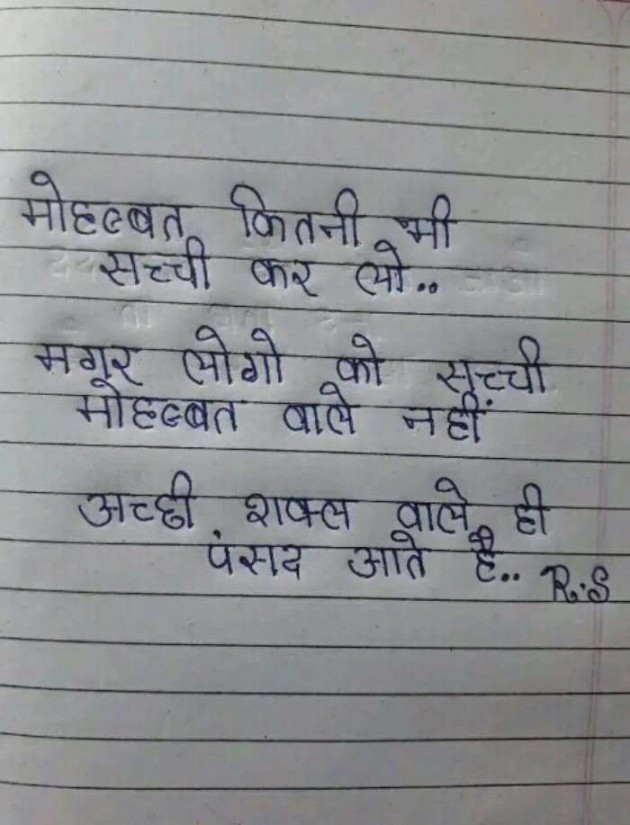 मोहब्बत कितनी भी
सच्ची कर लो..
मगर लोगो को सच्ची
मोहब्बत वाले नहीं
अच्छी शक्ल वाले ही
पंसद आते है.. R.S